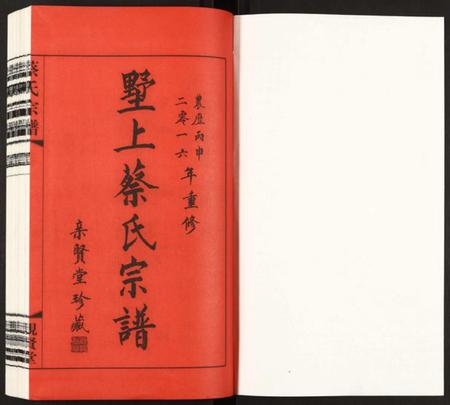 農歷丙申
二零一六年重修
墅上蔡氏宗譜
亲賢堂珍藏
蔡氏宗譜